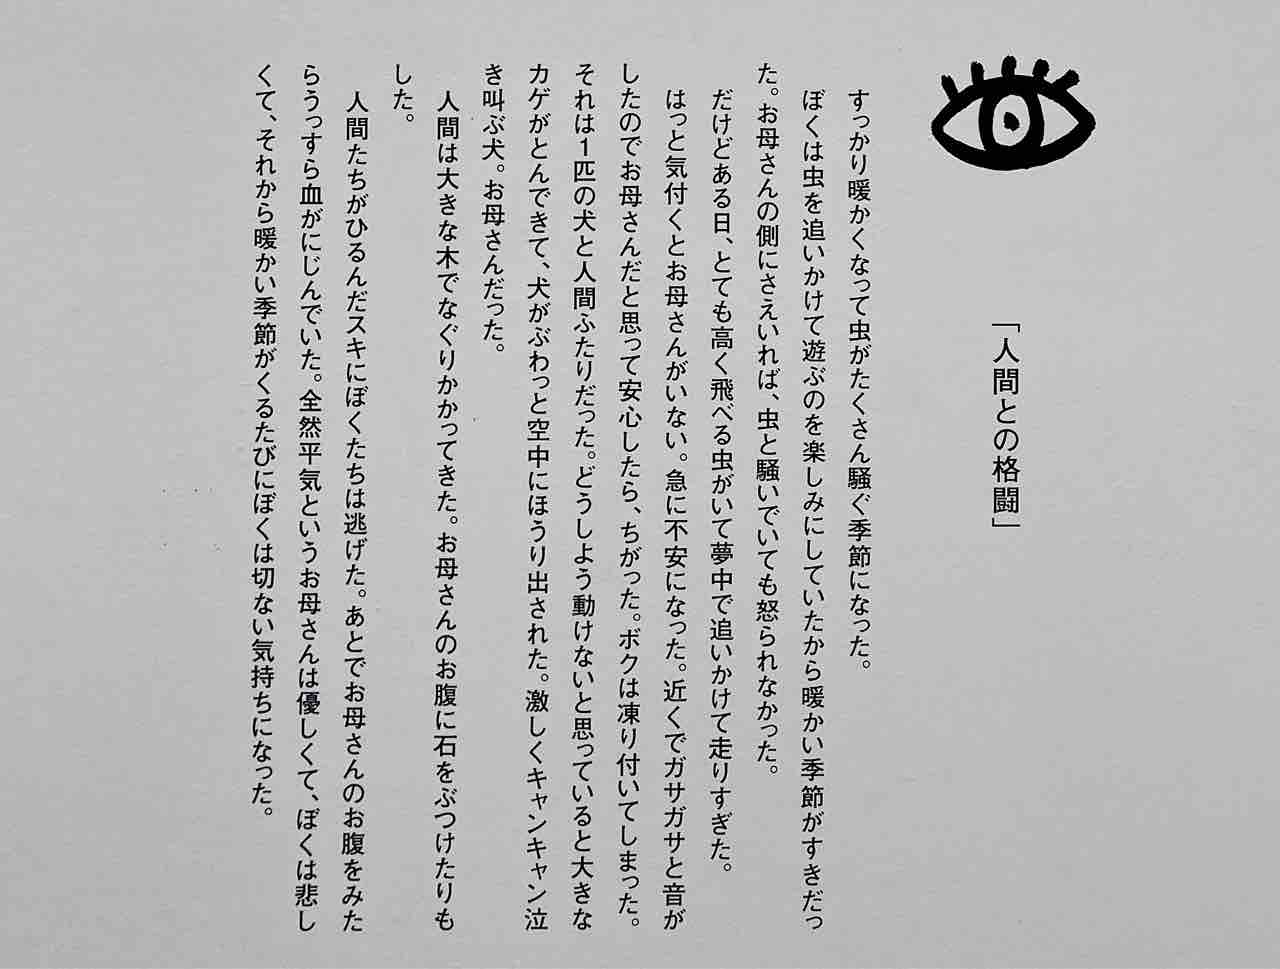 「人間との格闘」
すっかり暖かくなって虫がたくさん騒ぐ季節になった。
ぼくは虫を追いかけて遊ぶのを楽しみにしていたから暖かい季節がすきだっ
た。お母さんの側にさえいれば、虫と騒いでいても怒られなかった。
だけどある日、とても高く飛べる虫がいて夢中で追いかけて走りすぎた。
はっと気付くとお母さんがいない。急に不安になった。近くでガサガサと音が
したのでお母さんだと思って安心したら、ちがった。ボクは凍り付いてしまった。
それは1匹の犬と人間ふたりだった。どうしよう動けないと思っていると大きな
カゲがとんできて、犬がぶわっと空中にほうり出された。激しくキャンキャン泣
き叫ぶ犬。お母さんだった。
人間は大きな木でなぐりかかってきた。お母さんのお腹に石をぶつけたりも
した。
人間たちがひるんだスキにぼくたちは逃げた。あとでお母さんのお腹をみた
らうっすら血がにじんでいた。全然平気というお母さんは優しくて、ぼくは悲し
くて、それから暖かい季節がくるたびにぼくは切ない気持ちになった。